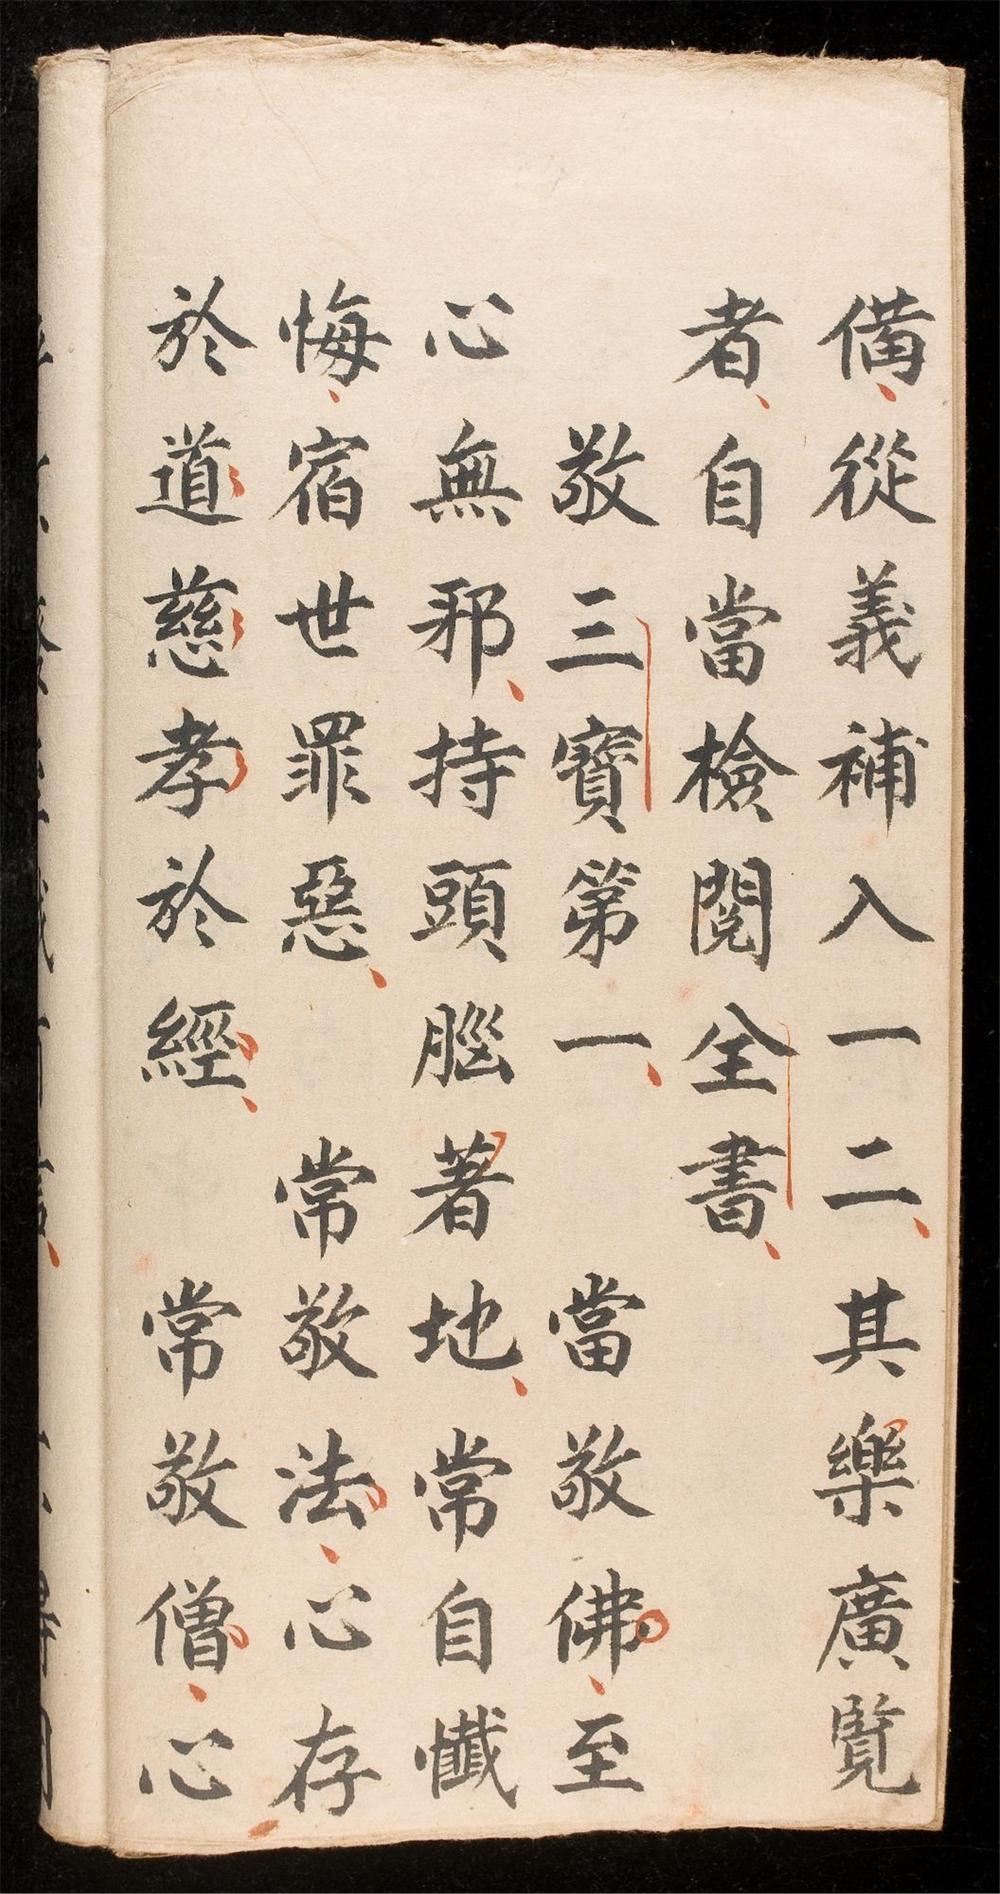 備從義補入一二其樂廣覧
者自當檢閱全書
敬三寶第一 當敬佛至
心無邪持頭腦著地常自懺
悔宿世罪惡 常敬法心存
於道慈孝於經 常敬僧心